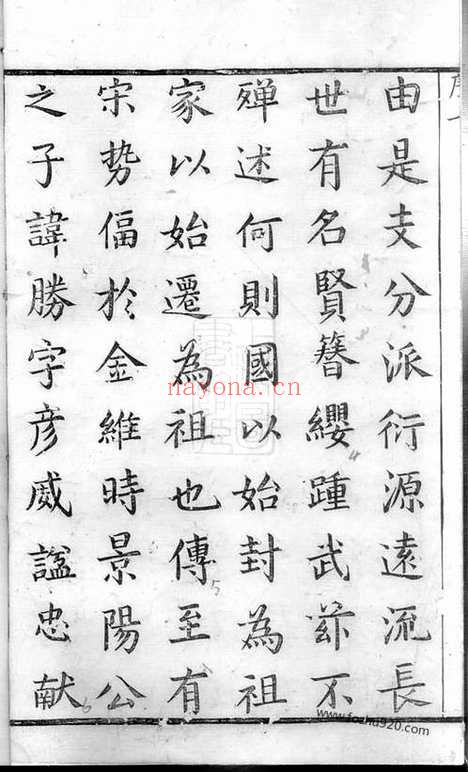 由是支分派衍源遠流長
世有名賢簪纓踵武茲不
殫述何則國以始封為祖
家以始遷為祖也傳至有
宋势偪於金維時景陽公
之子諱勝字彦威諡忠献
nayona.cn
www.fozhu920.com